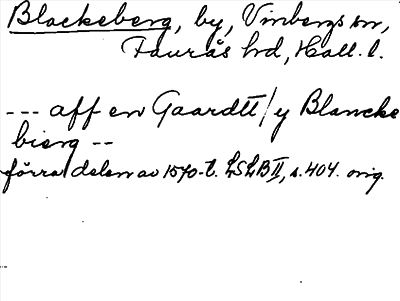 Blackeberg, by, Vinbergs sn,
Faurås hd, Hall. l.
--- aff en Gaardtt / y Blancke
bierg --
förra delen av 1570-t. LSLB II, s. 404. orig.